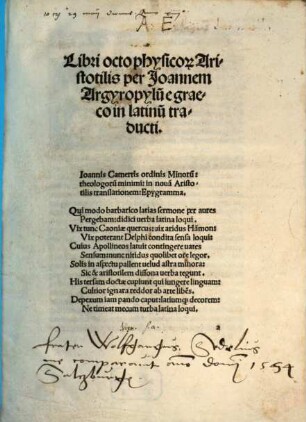 A E
Libri octo physicoꝝ Ari-
stotilis per Joannem
Argyropylū e grae-
co in latinū tra-
ducti.
Ioannis Camertis ordinis Minorū:
theologorū minimi: in nouā Aristo-
tilis translationem: Epygramma.
Qui modo barbarico latias sermone per aures
Pergebam: didici verba latina loqui.
Vix tunc Caoniæ quercus: vix aridus Hāmons
Vix poterant Delphi condita sensa loqui
Cuius Apollineos
Sensum nunc nitidus quolibet ore legor.
Solis in aspectu pallent uelud astra minora:
Sic & aristotilem dissona uerba tegunt.
His tersam doctæ cupiunt qui iungere linguam:
Cultior ignara reddor ab arte libēs.
Depereum iam pando caput: latiumque decorem:
Ne timeat mecum turba latina loqui.
a
frater Wolfgangus Sedelius
me comparauit anno domī 1554
Salzburgȩ.